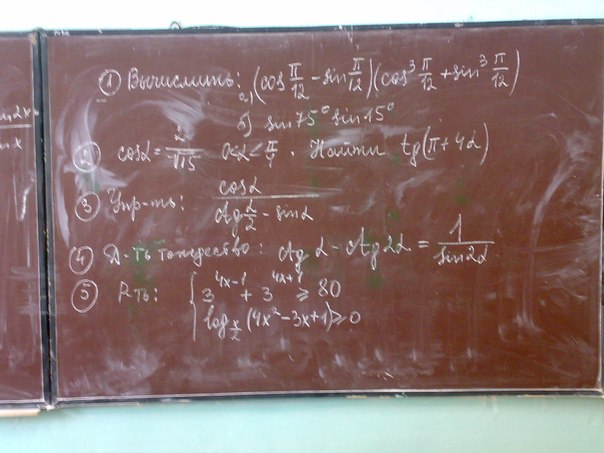 in2x
nx
① Вычислить: а) (cos π/12 - sin π/12)(cos³ π/12 + sin³ π/12)
б) sin75° sin15°
② cosα = 2/√15 0<α<π/4. Найти tg(π+4α)
③ Упр-ть: cosα/(ctg α/2 - sinα)
④ Д-ть тождество: ctg α - ctg 2α = 1/sin2α
⑤ Rть: { 3^(4x-1) + 3^(4x+1) ≥ 80
log_(x/2) (4x² - 3x + 1) ≥ 0